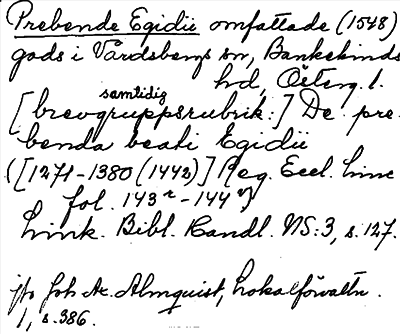 Prebende Egidii omfattade (1548)
gods i Vårdsbergs sn, Bankekinds
hd, Österg. l.
samtidig
[brevgruppsrubrik:] De pre-
benda beati Egidii
([1271-1380 (1442)] Reg. Eccl. Linc
fol. 143r-144v)
Link. Bibl. Handl. NS:3, s. 127.
jfr Joh Ax. Almquist, Lokalförvaltn.
1, s. 386.